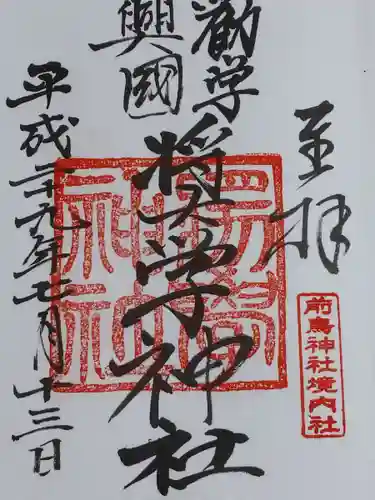 奉拝
勧学
興國
奨学神社
平成二十九年七月十三日
前鳥神社境内社